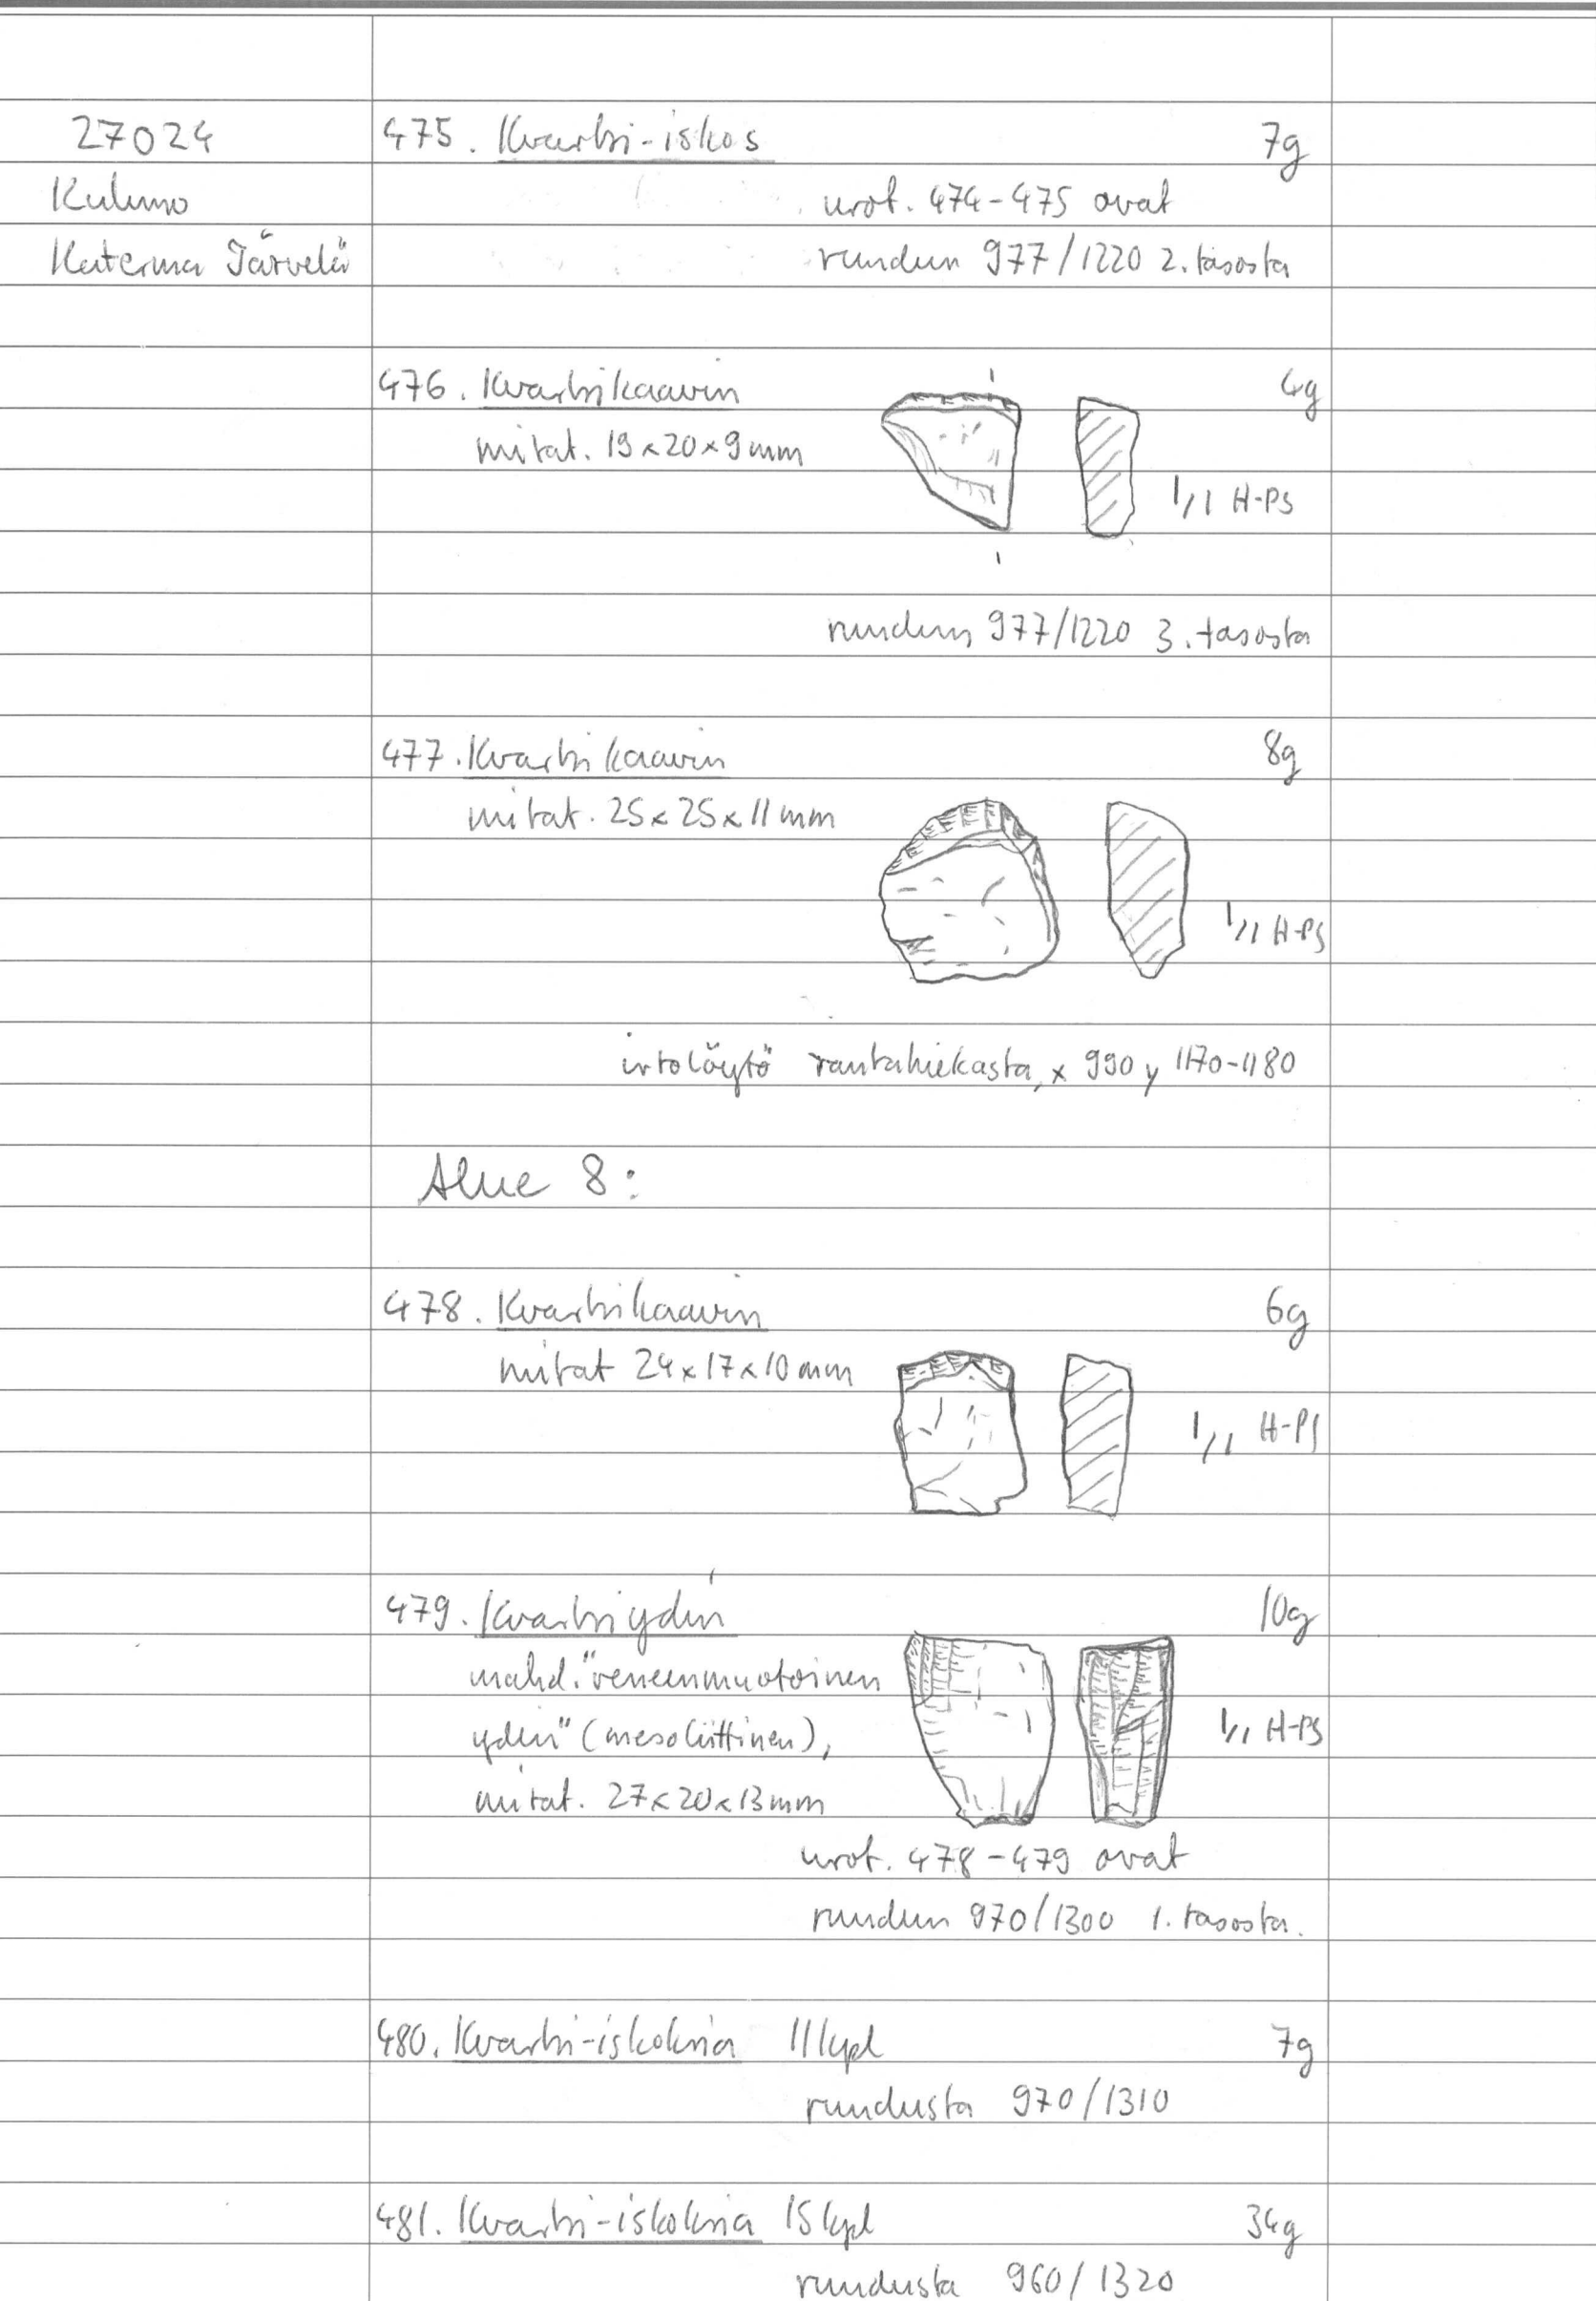 27024
Kuhmo
Katerma Järvelä
475. Kvartsi-iskos 7g
nrot. 474-475 ovat
ruudun 977/1220 2. tasosta
476. Kvartsikaavin 4g
mitat. 19x20x9mm
1/1 H-PS
ruudun 977/1220 3. tasosta
477. Kvartsikaavin 8g
mitat. 25x25x11mm
1/1 H-PS
irtolöytö rantahiekasta, x 990 y 1170-1180
Alue 8:
478. Kvartsikaavin 6g
mitat 24x17x10mm
1/1 H-PS
479. Kvartsiydin 10g
mahd. "veneenmuotoinen
ydin" (mesoliittinen),
1/1 H-PS
mitat. 27x20x13mm
nrot. 478-479 ovat
ruudun 970/1300 1. tasosta.
480. Kvartsi-iskoksia 11kpl 7g
ruudusta 970/1310
481. Kvartsi-iskoksia 15kpl 34g
ruudusta 960/1320